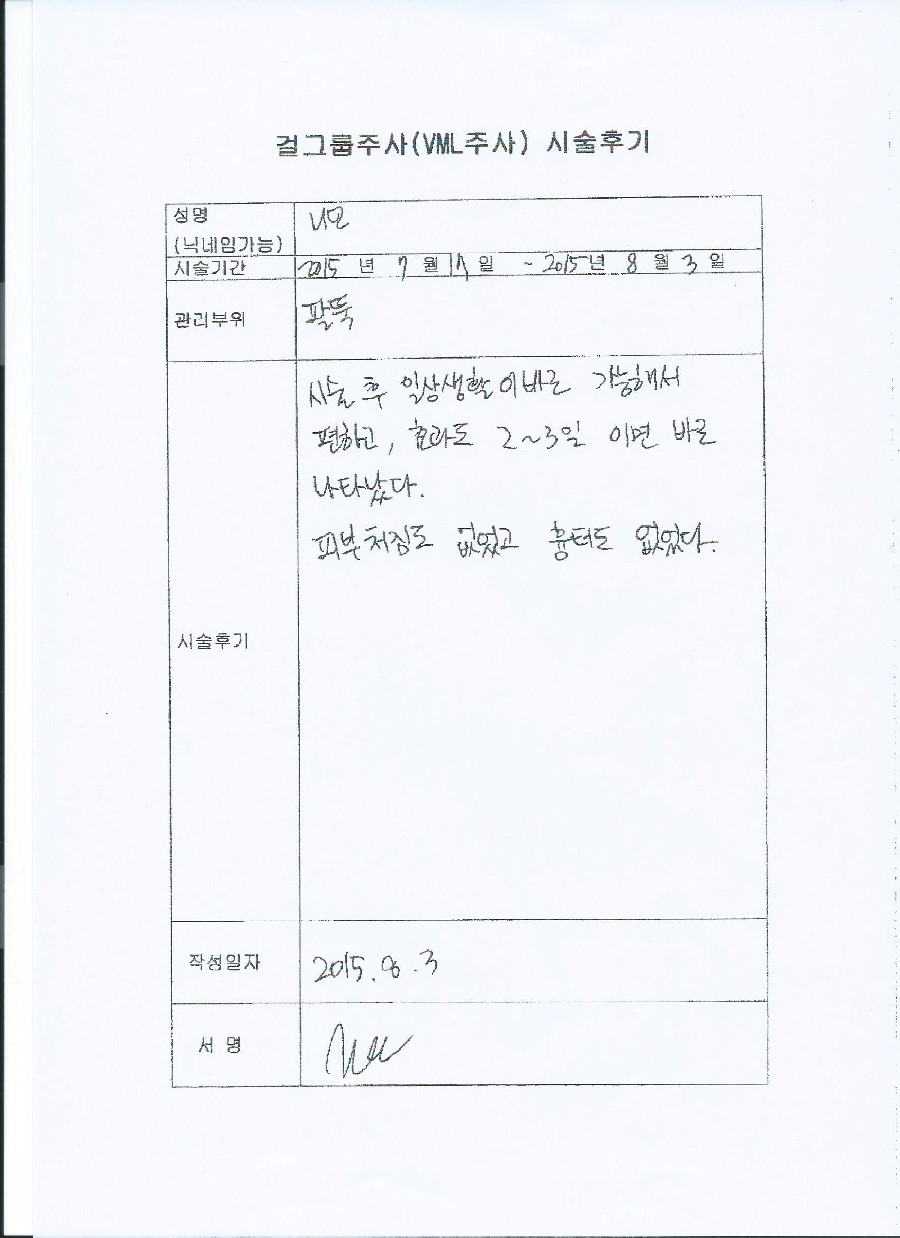 걸그룹주사(VML주사) 시술후기
성명 니모
(닉네임가능)
시술기간 2015 년 7 월 17 일 ~ 2015 년 8 월 3 일
관리부위 팔뚝
시술 후 일상생활이 바로 가능해서
편하고, 효과도 2~3일 이면 바로
나타났다.
피부처짐도 없었고 흉터도 없었다.
시술후기
작성일자 2015. 8. 3
서 명